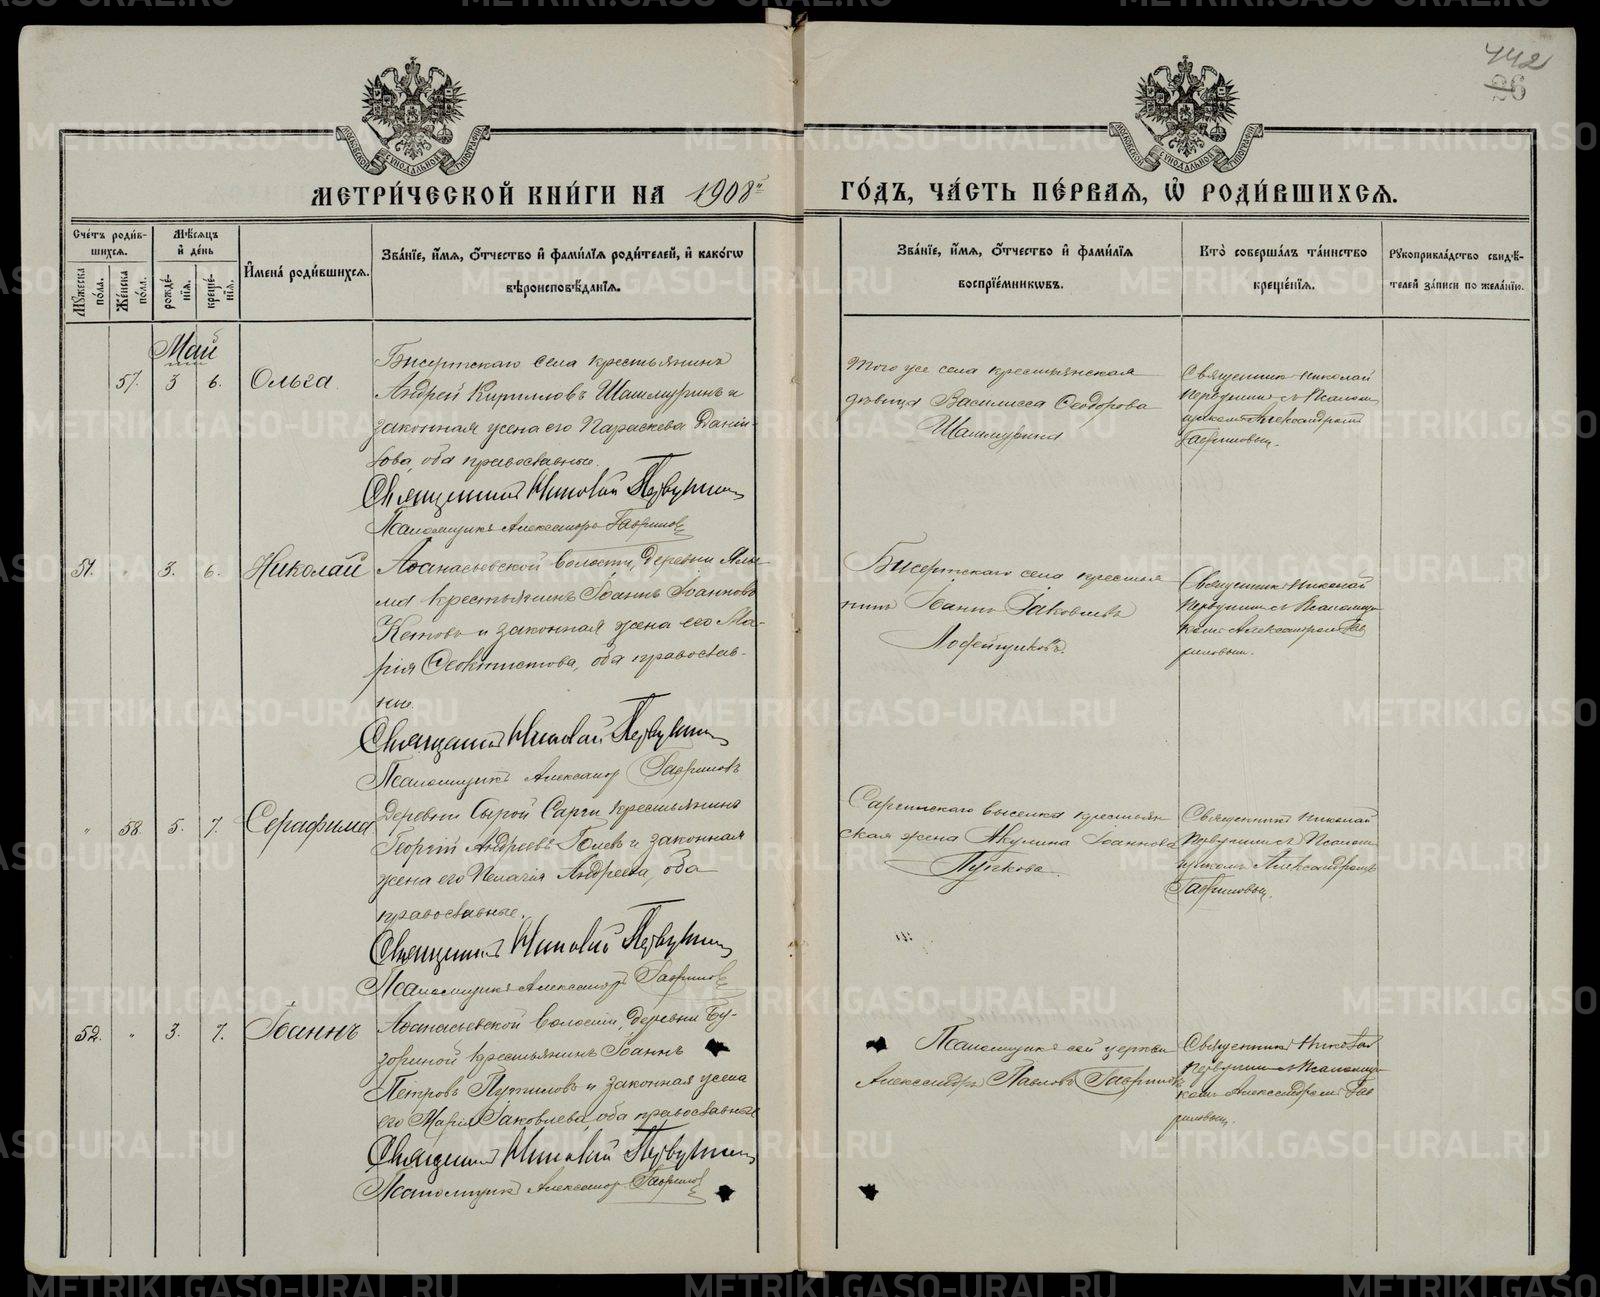 442
96
МЕТРИ́ЧЕСКОЙ КНИ́ГИ НА 1908й ГО́ДЪ, ЧА́СТЬ ПЕ́РВАЯ, Ѡ҆ РОДИ́ВШИХСЯ.
Сче́тъ роди́в-
шихся.
Му́жеска
по́ла.
Же́нска
по́ла.
Мѣ́сяцъ
и҆ де́нь
рожде́-
нїя.
креще́-
нїя.
И҆мена̀ роди́вшихся.
Зва́нїе, и҆́мя, о҆́тчество и҆ фами́лїя роди́телей, и҆ како́гѡ
вѣроисповѣ́данїя.
Зва́нїе, и҆́мя, о҆́тчество и҆ фами́лїя
воспрїе́мникѡвъ.
Кто̀ соверша́лъ та́инство
креще́нїя.
Рукоприкла́дство свидѣ́-
телей за́писи по жела́нїю.
Май
57. 3 6. Ольга.
Бисертскаго села крестьянинъ
Андрей Кирилловъ Шашмуринъ и
законная жена его Параскева Дані-
лова, оба православные.
Священник Николай Первушин
Псаломщикъ Александръ Гаврилов
Того же села крестьянская
дѣвица Василисса Ѳеодорова
Шашмурина
Священник Николай
Первушин съ Псалом
щиком Александром
Гавриловым.
51. " 3. 6. Николай
Аѳанасьевской волости, деревни
крестьянинъ Іоаннъ Іоанновъ
Кетовъ и законная жена его Ма-
рія Ѳеоктистова, оба православ-
ные.
Священник Николай Первушин
Псаломщикъ Александр Гавриловъ
Бисертскаго села крестья
нинъ Іоаннъ Іаковлевъ
Священник Николай
Первушин съ Псаломщи
комъ Александром Гав
риловым.
" 58. 5. 7. Серафима
Деревни Сырой Сарги крестьянинъ
Георгій Андреевъ и законная
жена его Пелагія Андреева, оба
православные.
Священник Николай Первушин
Псаломщикъ Александръ Гаврилов
Саргинскаго выселка крестьян
ская жена Акулина Іоаннова
Пучкова.
Священник Николай
Первушин съ Псалом
щикомъ Александромъ
Гавриловым.
52. " 3. 7. Іоаннъ
Аѳанасьевской волости, деревни Бу-
гориной крестьянинъ Іоаннъ
Петровъ и законная жена
его Марія Іаковлева, оба православные
Священник Николай Первушин
Псаломщикъ Александр Гаврилов
Псаломщикъ сей церкви
Александръ Павловъ Гавриловъ
Священник Николай
Первушин съ Псаломщи
комъ Александром Гав
риловым.
METRIKI.GASO-URAL.RU